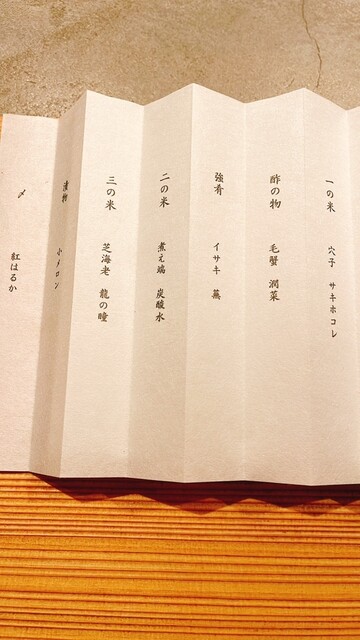 一の米 穴子 サキホコレ
酢の物 毛蟹 潤菜
強肴 イサキ 蕪
二の米 煮え端 炭酸水
三の米 芝海老 龍の瞳
漬物 小メロン
〆 紅はるか